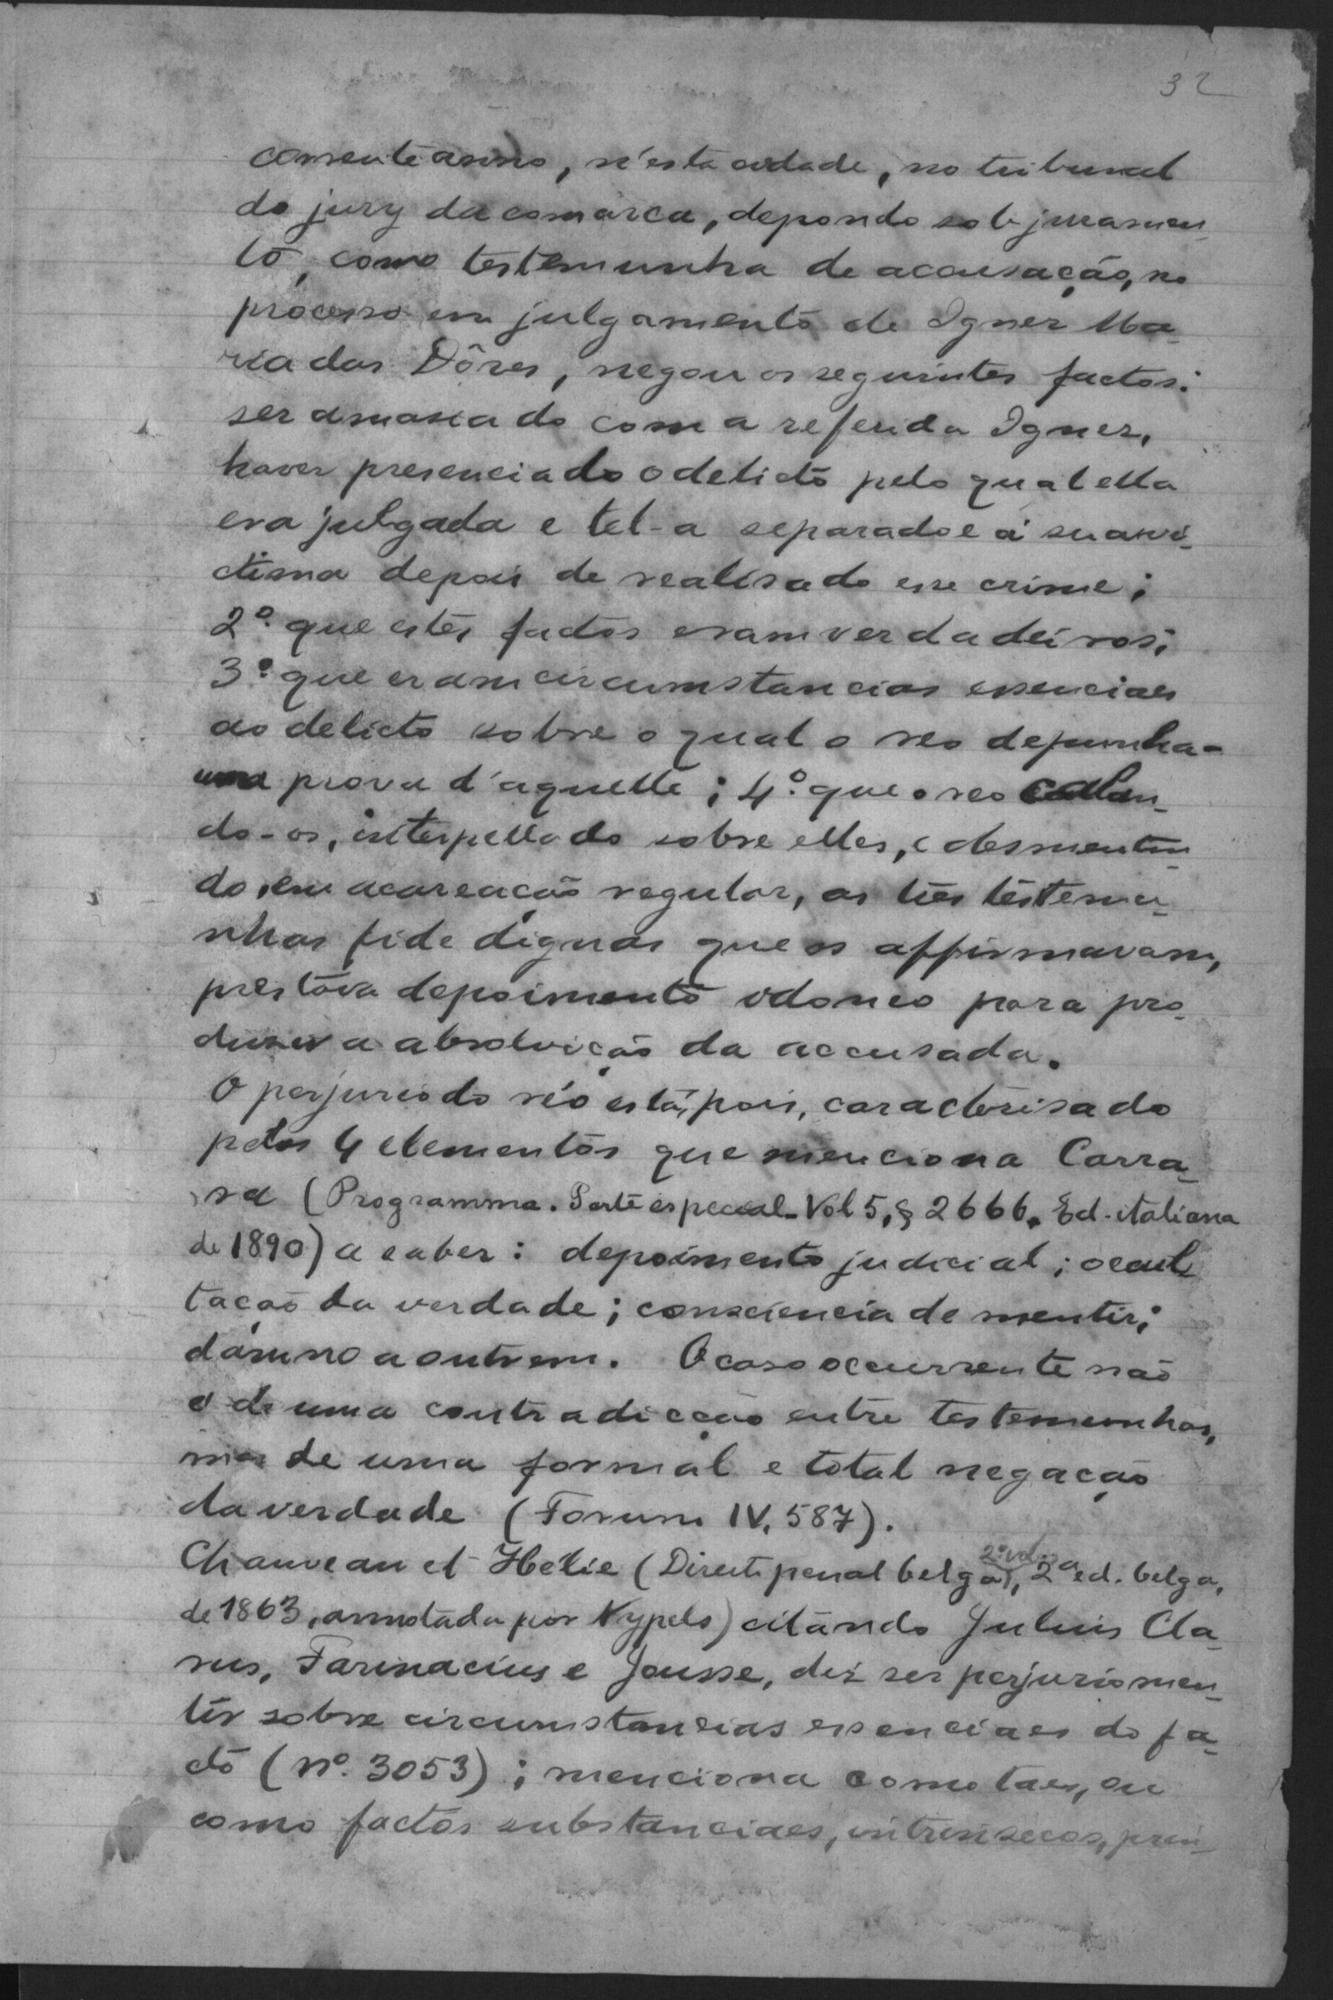 32
corrente anno, n'esta cidade, no tribunal
do jury da comarca, depondo sob juramen-
to, como testemunha de accusação, no
processo em julgamento de Ignez Ma-
ria das Dôres, negou os seguintes factos:
ser amasiado com a referida Ignez,
haver presenciado o delicto pelo qual ella
era julgada e tel-a separado e á sua vi-
ctima depois de realisado esse crime;
2º que estes factos eram verdadeiros;
3º que eram circumstancias essenciaes
ao delicto sobre o qual o reo depunha -
uma prova d'aquelle; 4º que o reo calan-
do-os, interpellado sobre elles, e desmentin-
do, em acareação regular, as tres testemu-
nhas fidedignas que os affirmavam,
prestava depoimento idoneo para pro-
duzir a absolvição da accusada.
O perjurio do réo está, pois, caracterisado
pelos 4 elementos que menciona Carra-
ra (Programma. Parte especial - Vol 5, § 2666. Ed. italiana
de 1890) a saber: depoimento judicial; occul-
tação da verdade; consciencia de mentir;
damno a outrem. O caso occurrente não
é de uma contradicção entre testemunhas,
mas de uma formal e total negação
da verdade (Forum IV, 587).
Chauveau et Hélie (Direito penal belga), 2º vol. 2ª ed. belga,
de 1863, annotada por Nypels) citando Julius Cla-
rus, Farinacius e Jousse, diz ser perjurio men-
tir sobre circumstancias essenciaes do fa-
cto (nº 3053); menciona como taes, ou
como factos substanciaes, intrinsecos, prin-